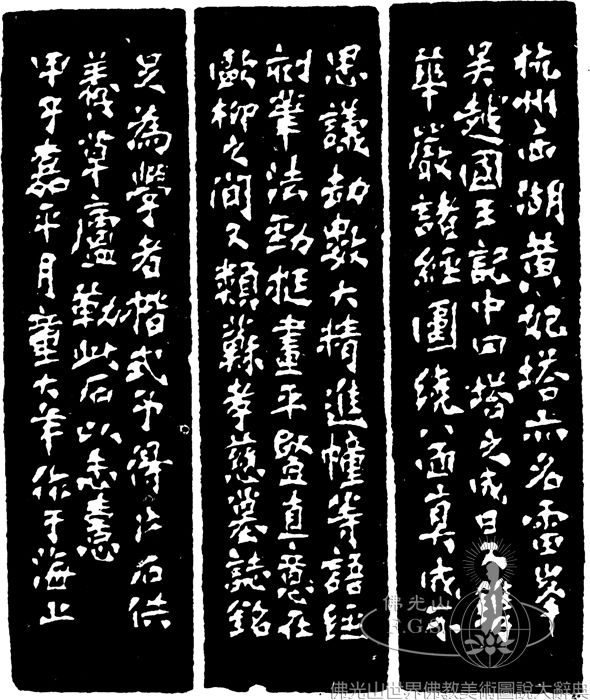 杭州西湖黄妃塔亦名雷峰
吳越國王記中曰塔之成日又鐫
華嚴諸經圍繞八面真成不
思議劫數大精進幢等語經
刻筆法勁挺畫平豎直意在
歐柳之間又類蘇孝慈墓誌銘
足為學者楷式予得片石供
養草廬勒此石以志憙
甲子嘉平月童大年作于海上
佛光山
F.G.S.
佛光山世界佛教美術圖說大辭典